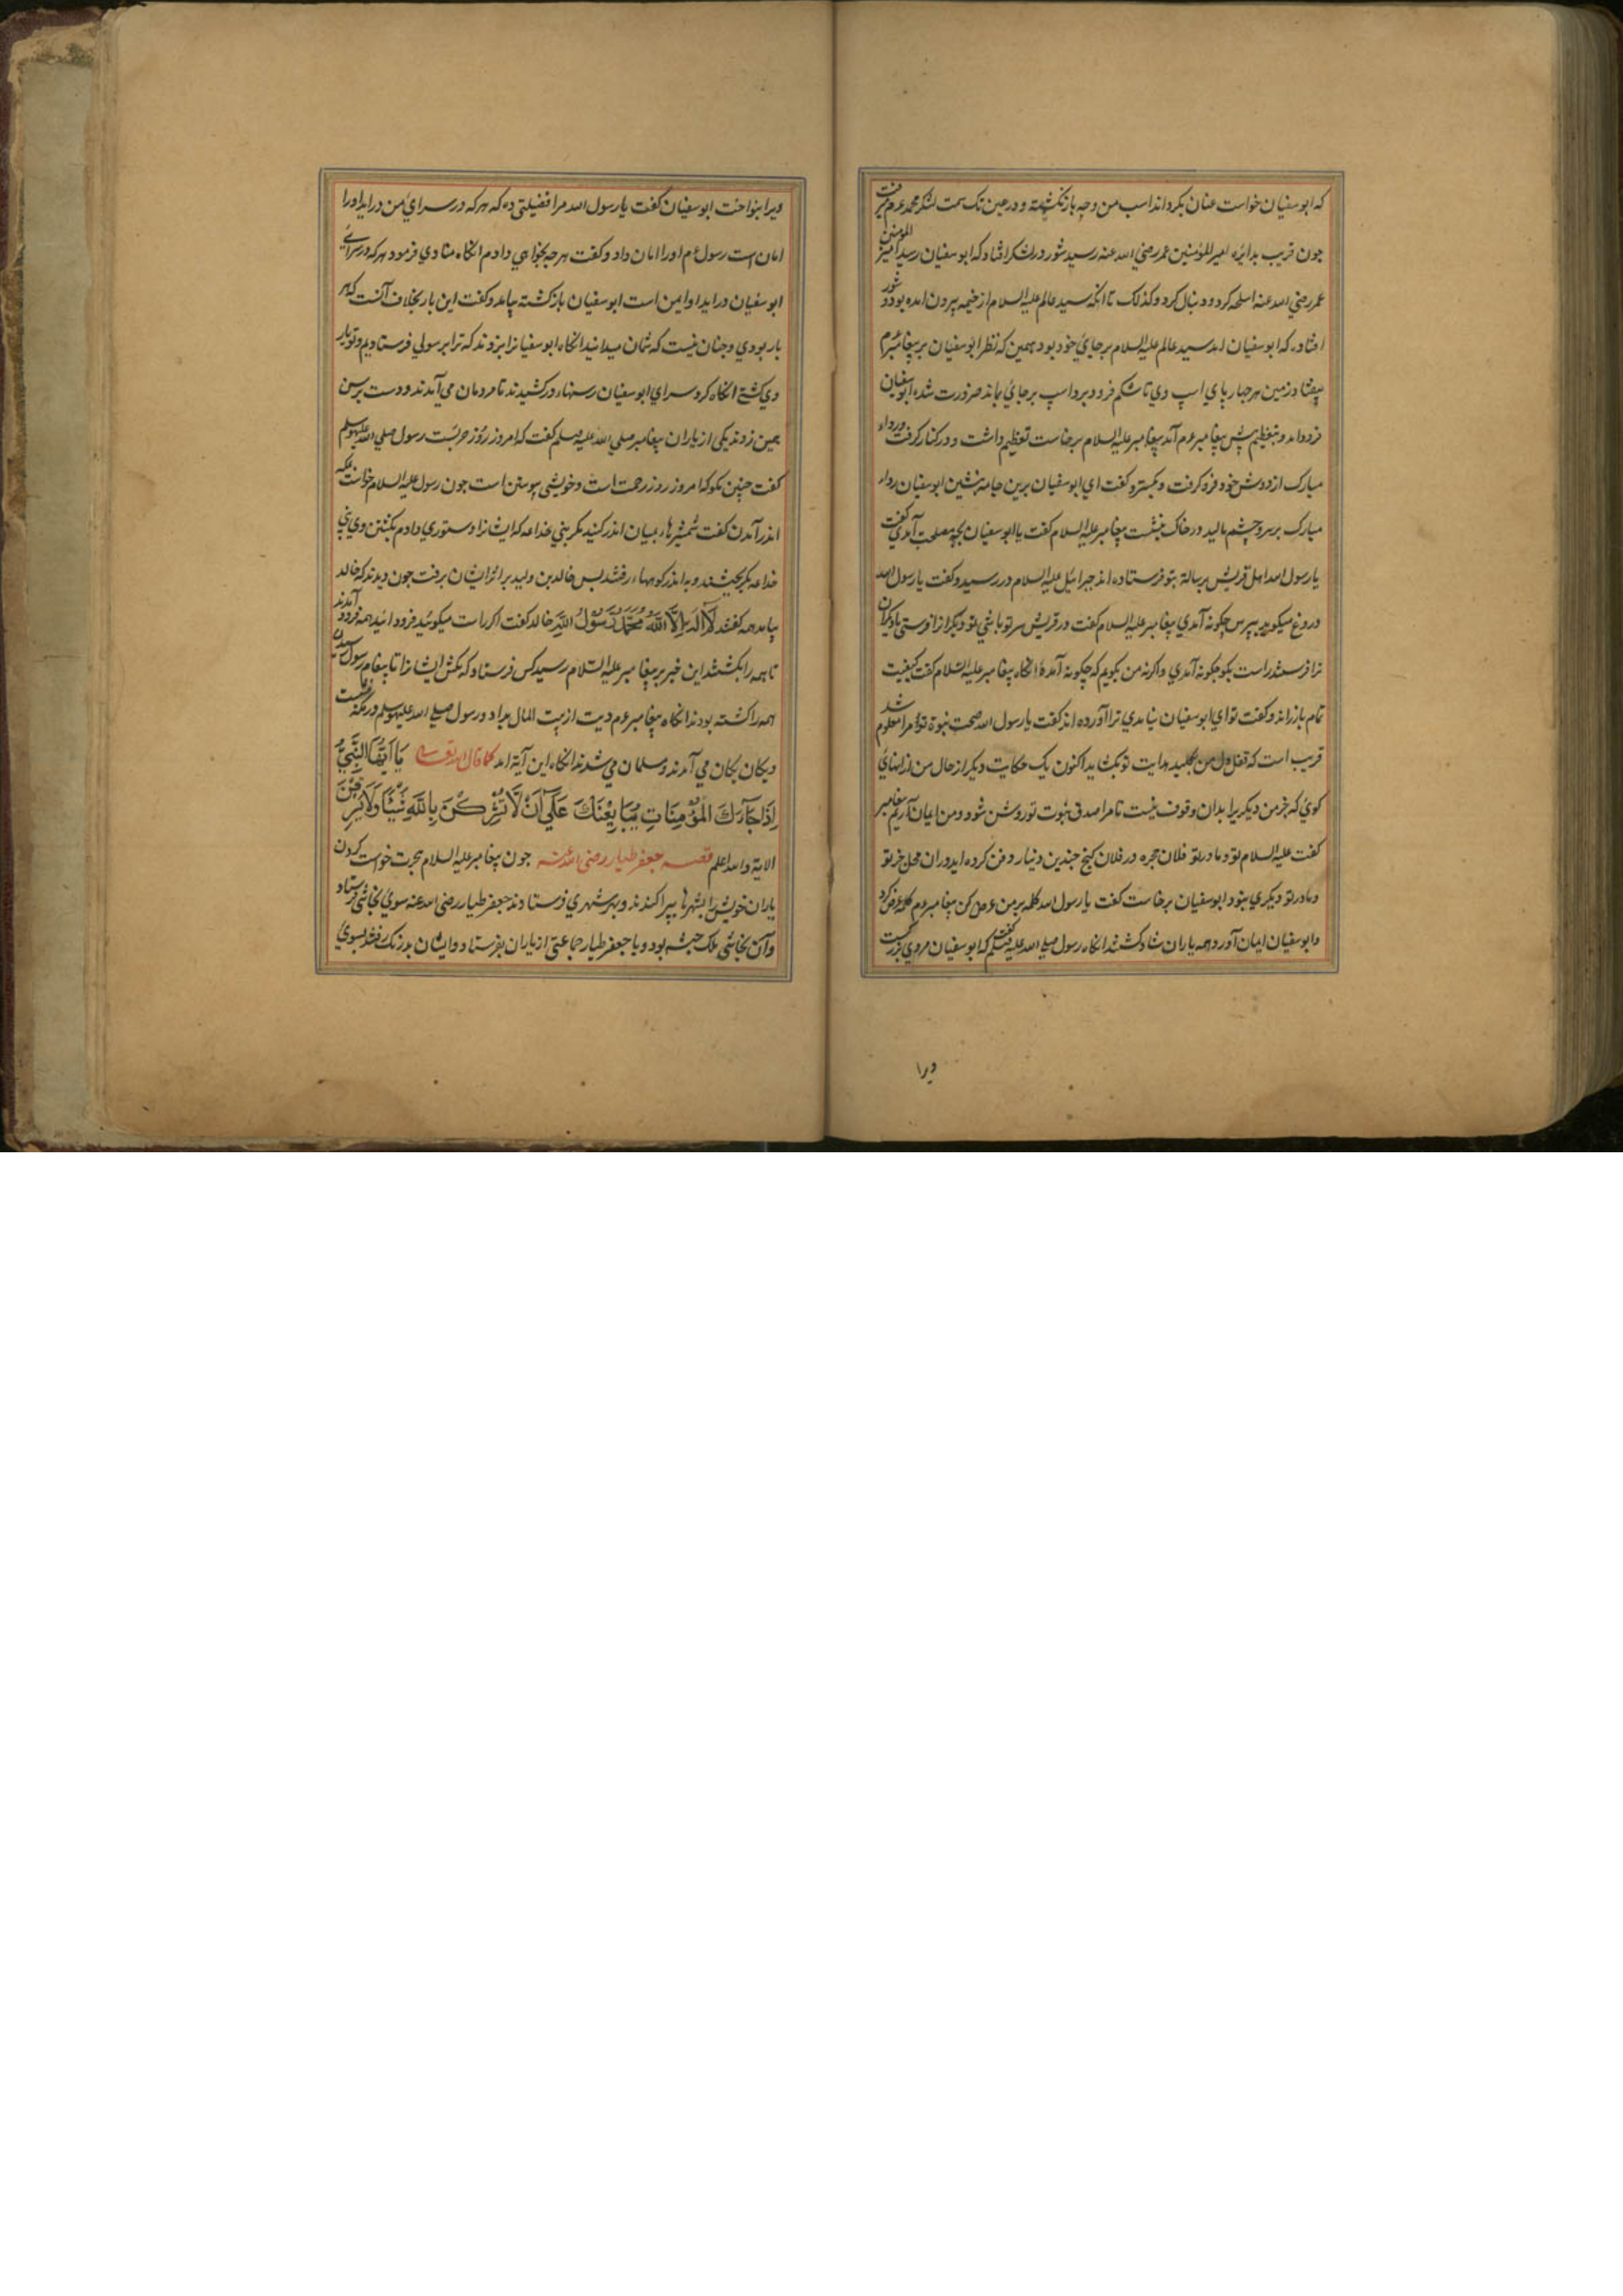 که ابوسفیان خواست عنان بکرداند اسب من وجه باز نکشته و در عین تک سمت لشکر محمد عم برفت
جون قریب بدایره امیر المؤمنین عمر رضي الله عنه رسید شور در لشکر افتاد که ابوسفیان رسید امیر المؤمنین
عمر رضي الله عنه اسلحه کرد و دنبال کرد و کذلک تا انکه سید عالم علیه السلام از خیمه بیرون امده بود و شور
افتاده که ابوسفیان امد سید عالم علیه السلام بر جاي خود بود همین که نظر ابوسفیان بر پیغامبر عم
بیفتاد زمین هر جهار پاي اسپ وي تا شکم فرو برد اسپ بر جاي بماند ضرورت شده ابوسفیان
فرود امد و بتعظیم پیش پیغامبر عم آمد پیغامبر علیه السلام برخاست تعظیم داشت و در کنار کرفت و رداء
مبارک از دوش خود فرو کرفت و بکسترد و کفت اي ابوسفیان برین جامه بنشین ابوسفیان رداء
مبارک بر سر و چشم مالید در خاک بنشست پیغامبر علیه السلام کفت یا ابوسفیان بچه مصلحت آمدي کفت
یا رسول الله اهل قریش برسالة بتو فرستاده اند جبرائیل علیه السلام در رسید و کفت یا رسول الله
دروغ میکوید بپرس چکونه آمدي پیغامبر علیه السلام کفت در قریش سر تو باشي تو دیکرانرا فرستي یا دیکران
ترا فرستند راست بکو جکونه آمدي و اکرنه من بکویم که چکونه آمدهٔ انکاه پیغامبر علیه السلام کفت کیفیت
تمام باز راند و کفت تو اي ابوسفیان نیامدي ترا آورده اند کفت یا رسول الله صحت نبوة تو مرا معلوم شد
قریب است که قفل دل من بکلید هدایت تو بکشاید اکنون یک حکایت دیکر از حال من از انهاي
کوي که جز من دیکریرا بدان وقوف نیست تا مرا صدق نبوت تو روشن شود و من ایمان آریم پیغامبر
کفت علیه السلام تو و مادر تو فلان حجره در فلان کنج جندین دنیار دفن کرده اید و ران محل جز تو
و مادر تو دیکري نبود ابوسفیان برخاست کفت یا رسول الله کلمه بر من عرض کن پیغامبر عم کلمه عرض کرد
و ابوسفیان ایمان آورد همه یاران شاد کشتند انکاه رسول صلي الله علیه وسلم کفت که ابوسفیان مردي بزرکست
ویرا
ویرا بنواخت ابوسفیان کفت یا رسول الله مرا فضیلتي ده که هر که در سراي من در اید او را
امان است رسول عم او را امان داد و کفت هر چه بخواهي دادم انکاه منادي فرمود هر که در سراي
ابوسفیان در اید او ایمن است ابوسفیان باز کشته بیامد و کفت این بار بخلاف آنست که هر
بار بودي و جنان نیست که شمان میدانید انکاه ابوسفیانرا بزدند که ترا برسولي فرستادیم و تو یار
وي کشتي انکاه کرد سراي ابوسفیان رسنها در کشیدند تا مردمان مي آمدند و دست بر سن
همین زدند یکي از یاران پیغامبر صلي الله علیه وسلم کفت که امروز روز حربست رسول صلي الله علیه وسلم
کفت جنین مکو که امروز روز رحمت است و خویشي پیوستن است جون رسول علیه السلام خواست بمکه
اندر آمدن کفت شمشیرها بمیان اندر کنید مکر بني خداعه که ایشانرا دستوري دادم بکشتن وي بني
خداعه بکریختند و به اندر کوهها رفتند بس خالد بن ولید بر اثر ایشان برفت جون دیدند که خالد
بیامد همه کفتند لَا اِلٰهَ اِلَّا اللهُ مُحَمَّدٌ رَسُوْلُ اللهِ خالد کفت اکر راست میکوئید فرود ائید همه فرود آمدند
تا همه را بکشتند این خبر بر پیغامبر علیه السلام رسید کس فرستاد که مکش ایشانرا تا پیغام رسول رسیدن
همه را کشته بودند انکاه پیغامبر عم دیت از بیت المال بداد و رسول صلي الله علیه وسلم در مکه بنشست
و یکان یکان مي آمدند و مسلمان مي شدند انکاه این آیة امد کما قال الله تعالی یَا اَیُّهَا النَّبِيُّ
اِذَا جَآءَكَ الْمُؤْمِنَاتِ یُبَایِعْنَكَ عَلَي اَنْ لَّا تُشْرِكْنَ بِاللّٰهِ شَیْئًا وَلَا يَسْرِقْنَ
الایة والله اعلم قصه جعفر طیار رضی الله عنه جون پیغامبر علیه السلام هجرت خواست کردن
یاران خویش را بشهرها بپراکندند و بهر شهري فرستادند جعفر طیار رضی الله عنه سوي نجاشي فرستاد
و آن نجاشي ملک حبشه بود و با جعفر طیار جماعتي از یاران بفرستاد و ایشان بدرنک رفتند بسوي